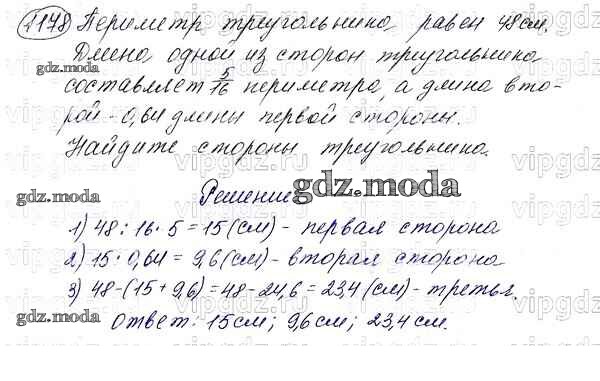 1178 Периметр треугольника равен 48 см.
Длина одной из сторон треугольника
составляет 5/16 периметра, а длина вто-
рой - 0,64 длины первой стороны.
Найдите стороны треугольника.
Решение
gdz.moda
1) 48 : 16 · 5 = 15 (см) - первая сторона
2) 15 · 0,64 = 9,6 (см) - вторая сторона
3) 48 - (15 + 9,6) = 48 - 24,6 = 23,4 (см) - третья.
Ответ: 15 см; 9,6 см; 23,4 см.
gdz.moda
gdz.moda
gdz.moda
gdz.moda
gdz.moda
vipgdz.ru
vipgdz.ru
vipgdz.ru